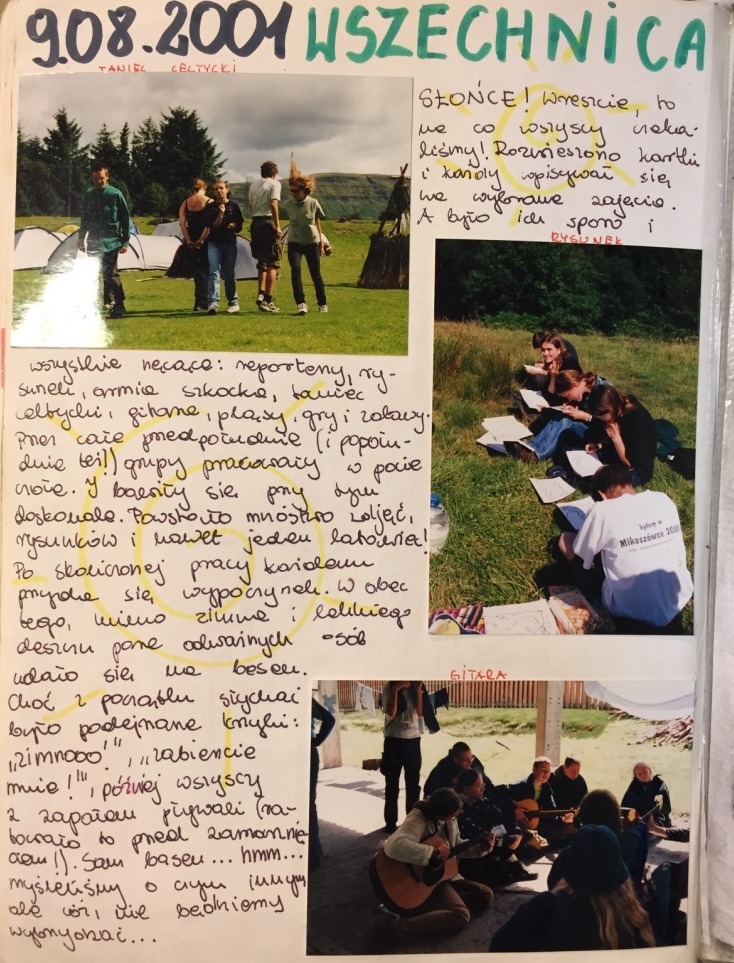 9.08.2001 WSZECHNICA
TANIEC CELTYCKI
SŁOŃCE! Wreszcie, to
na co wszyscy czeka-
liśmy! Rozwieszono kartki
i każdy wpisywał się
na wybrane zajęcia.
A było ich sporo i
RYSUNEK
wszystkie nęcące: reportery, ry-
sunek, armia szkocka, taniec
celtycki, gitara, pląsy, gry i zabawy.
Przez całe przedpołudnie (i popołu-
dnie też!) grupy pracowały w pocie
czoła. I bawiły się przy tym
doskonale. Powstało mnóstwo zdjęć,
rysunków i nawet jeden latawiec!
Po skończonej pracy każdemu
przyda się wypoczynek. W obec
tego, mimo zimna i lekkiego
deszczu parę odważnych osób
udało się na basen.
Choć z początku słychać
było podejrzane krzyki:
„zimnooo!", „zabierzcie
mnie!", później wszyscy
z zapałem pływali (ra-
towało to przed zamarznię-
ciem!). Sam basen... hmm...
myśleliśmy o czym innym
ale cóż, nie będziemy
wybrzydzać...
byłem w
Mikaszówce 2000
GITARA